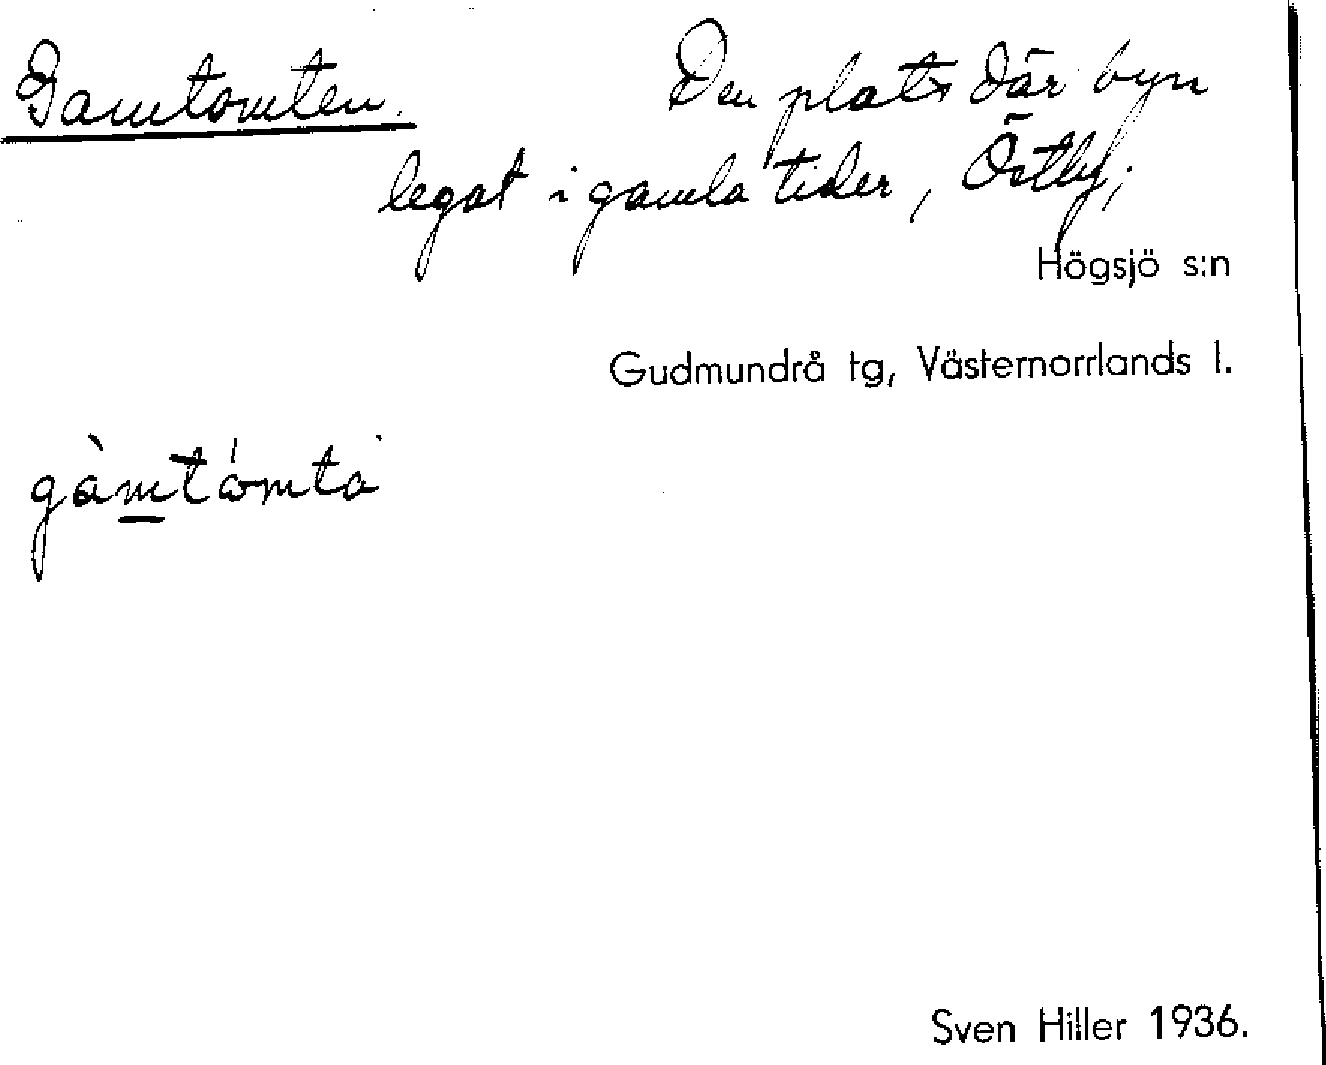 Gamtomten. Den plats där byn
legat i gamla tider, Östby;
Högsjö s:n
Gudmundrå tg, Västernorrlands l.
gàmtómta
Sven Hiller 1936.